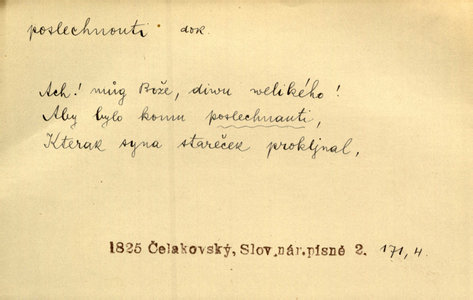 poslechnouti dok.
Ach! můg Bože, diwu welikého!
Aby bylo komu poslechnauti,
Kterak syna stareček prokljnal,
1825 Čelakovský, Slov.nár.písně 2. 171, 4.